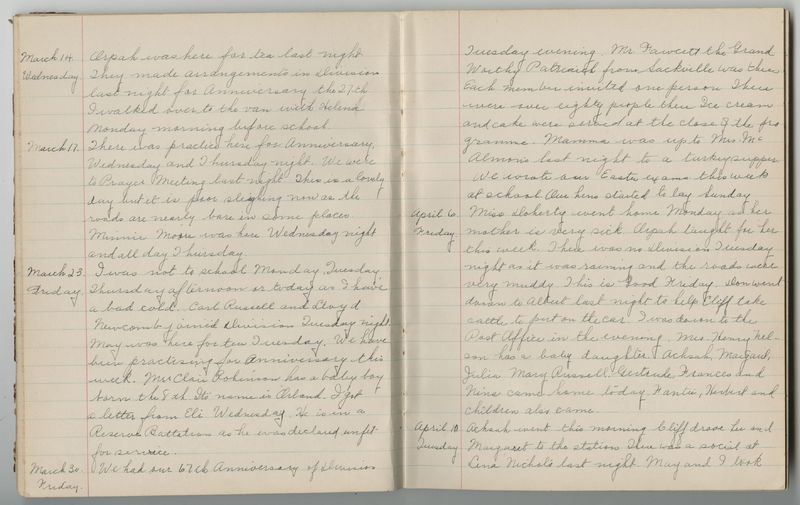 March 14. Orpah was here for tea last night
Wednesday They made arrangements in Division
last night for Anniversary the 27th
I walked over to the van with Helena
Monday morning before school.
March 17. There was practice here for Anniversary,
Wednesday and Thursday night. We were
to Prayer Meeting last night This is a lovely
day but it is poor sleighing now as the
roads are nearly bare in some places.
Minnie Moore was here Wednesday night
and all day Thursday
March 23. I was not to school Monday, Tuesday,
Friday. Thursday afternoon or today as I have
a bad cold. Carl Russell and Lloyd
Newcomb joined Division Tuesday night
May was here for tea Tuesday. We have
been practising for Anniversary this
week. Mrs Clair Robinson has a baby boy
born the 8th. Its name is Orland. I got
a letter from Eli Wednesday. He is in a
Reserve Battalion as he was declared unfit
for service.
March 30. We had our 67th Anniversary of Division
Friday.
Tuesday evening. Mr. Fawcett the Grand
Worthy Patriarch from Sackville was there
Each member invited one person There
were over eighty people there Ice cream
and cake were served at the close of the pro
gramme. Mamma was up to Mrs. Mc
Almon's last night to a turkey supper.
We wrote our Easter exams this week
at school Our hens started to lay Sunday
April 6. Miss Doherty went home Monday as her
Friday. mother is very sick Orpah taught for her
this week. There was no Division Tuesday
night as it was raining and the roads were
very muddy This is Good Friday. Don went
down to Albert last night to help Cliff take
cattle to put on the car. I was down to the
Post Office in the evening. Mrs. Henry Nel-
son has a baby daughter. Achsah, Margaret,
Julia Mary Russell Gertrude Frances and
Nina came home today. Hantie, Herbert and
children also came.
April 10. Achsah went this morning Cliff drove her and
Tuesday Margaret to the station There was a social at
Cena Nichols last night. May and I took